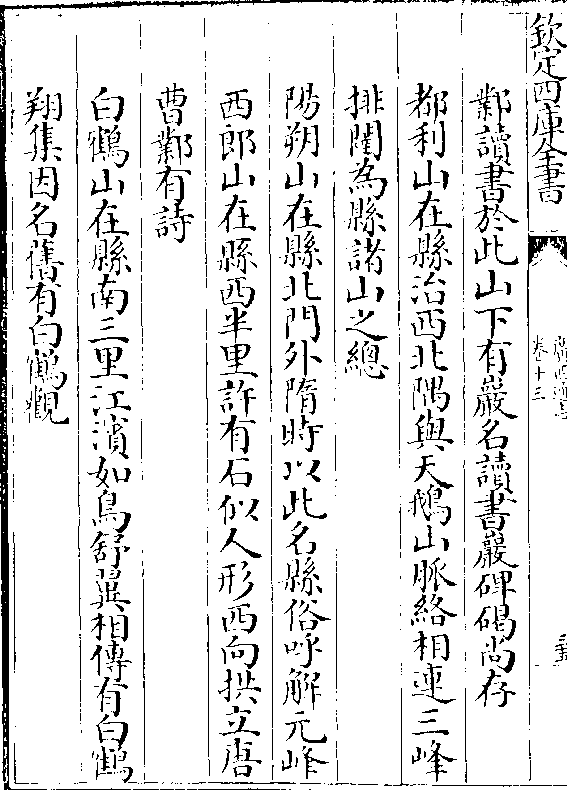 欽定四庫全書
卷十三
鄴讀書於此山下有巖名讀書巖碑碣尚存
都利山在縣治西北隅與天鵝山脈絡相連三峰
排闥為縣諸山之總
陽朔山在縣北門外隋時以此名縣俗呼解元峰
西郎山在縣西半里許有石似人形西向拱立唐
曹鄴有詩
白鶴山在縣南三里江濱如鳥舒翼相傳有白鶴
翔集因名舊有白鶴觀